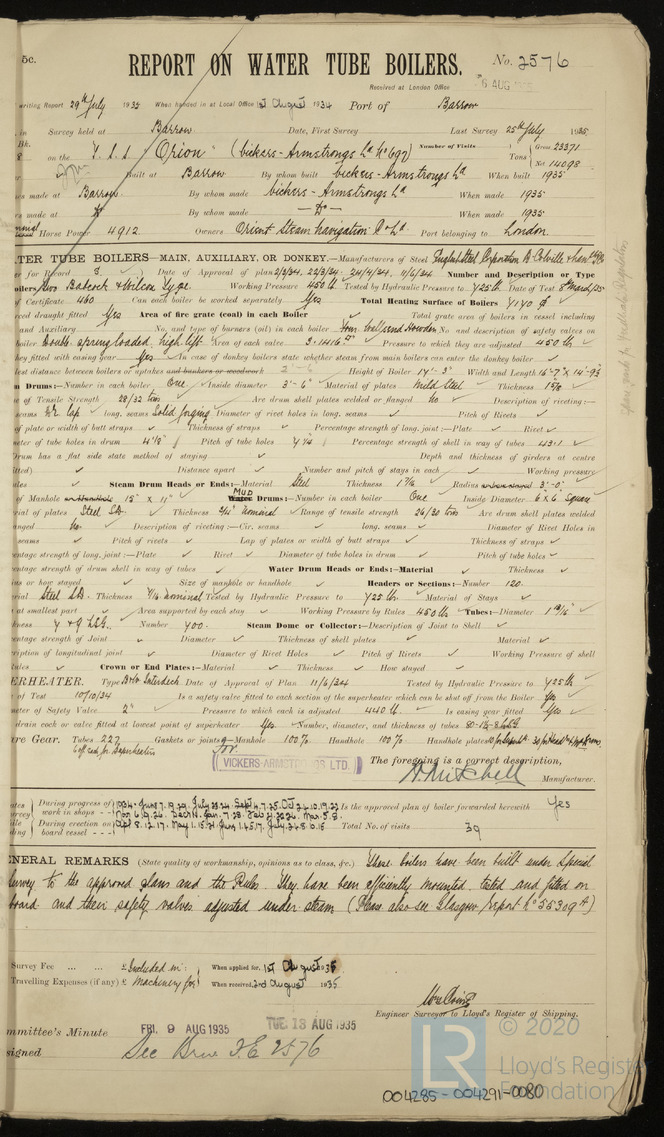 5c.
REPORT ON WATER TUBE BOILERS. No. 2576
Received at London Office 6 AUG
writing Report 29th July 1935 When handed in at Local Office 1st August 1934 Port of Barrow
in Survey held at Barrow Date, First Survey Last Survey 25th July 1935
Bk.
8 on the T.S.S "Orion" (Vickers-Armstrongs Ld No 697) Number of Visits Tons Gross 23371 Net 14098
Built at Barrow By whom built Vickers-Armstrongs Ld When built 1935
made at Barrow By whom made Vickers-Armstrongs Ld When made 1935
made at Do By whom made —Do— When made 1935
Nominal Horse Power 4912 Owners Orient Steam Navigation Co Ld Port belonging to London
ATER TUBE BOILERS—MAIN, AUXILIARY, OR DONKEY.—Manufacturers of Steel English Steel Corporation Ld Colville
for Record 8 Date of Approval of plan 2/2/34. 22/3/34. 24/4/34. 11/6/34 Number and Description or Type
Boilers Two Babcock & Wilcox Type Working Pressure 450 lb Tested by Hydraulic Pressure to 725 lb Date of Test 8th March/35
of Certificate 460 Can each boiler be worked separately Yes Total Heating Surface of Boilers
forced draught fitted Yes Area of fire grate (coal) in each Boiler Total grate area of boilers in vessel including
and Auxiliary No. and type of burners (oil) in each boiler No and description of safety valves on
boiler Double spring loaded high lift Area of each valve 3.1416 Pressure to which they are adjusted 450 lb
they fitted with easing gear Yes In case of donkey boilers state whether steam from main boilers can enter the donkey boiler
least distance between boilers or uptakes and bunkers or woodwork 2'-6" Height of Boiler 17'-3" Width and Length 16'-7" x 14'-9½
m Drums:—Number in each boiler One Inside diameter 3'-6" Material of plates Mild Steel Thickness
of Tensile Strength 28/32 tons Are drum shell plates welded or flanged No Description of riveting:—
seams Dr. Lap long. seams Solid forging Diameter of rivet holes in long. seams Pitch of Rivets
of plate or width of butt straps Thickness of straps Percentage strength of long. joint:—Plate Rivet
meter of tube holes in drum 4 1/8" Pitch of tube holes 7 1/4 Percentage strength of shell in way of tubes 43.1
Drum has a flat side state method of staying Depth and thickness of girders at centre
fitted) Distance apart Number and pitch of stays in each Working pressure
Steam Drum Heads or Ends:—Material Steel Thickness Radius or how stayed 3'-0"
of Manhole or Handhole 15" x 11" MUD Water Drums:—Number in each boiler One Inside Diameter 6 x 6 Square
rial of plates Steel S.D. Thickness 3/4" nominal Range of tensile strength 26/30 tons Are drum shell plates welded
anged No Description of riveting:—Cir. seams long. seams Diameter of Rivet Holes in
seams Pitch of rivets Lap of plates or width of butt straps Thickness of straps
centage strength of long. joint:—Plate Rivet Diameter of tube holes in drum Pitch of tube holes
centage strength of drum shell in way of tubes Water Drum Heads or Ends:—Material Thickness
ius or how stayed Size of manhole or handhole Headers or Sections:—Number 120
rial Steel S.D. Thickness 9/16 nominal Tested by Hydraulic Pressure to 725 lb Material of Stays
at smallest part Area supported by each stay Working Pressure by Rules 450 lb Tubes:—Diameter 1 13/16"
kness 7 & 9 L.S.G. Number 700 Steam Dome or Collector:—Description of Joint to Shell
centage strength of Joint Diameter Thickness of shell plates Material
ription of longitudinal joint Diameter of Rivet Holes Pitch of Rivets Working Pressure of shell
Rules Crown or End Plates:—Material Thickness How stayed
ERHEATER. Type B&W Interdeck Date of Approval of Plan 11/6/34 Tested by Hydraulic Pressure to 725 lb
of Test 10/10/34 Is a safety valve fitted to each section of the superheater which can be shut off from the Boiler Yes
meter of Safety Valve 2" Pressure to which each is adjusted 440 lb Is easing gear fitted Yes
drain cock or valve fitted at lowest point of superheater Yes Number, diameter, and thickness of tubes
are Gear. Tubes 227 Gaskets or joints:—Manhole 100% Handhole 100% Handhole plates
6 off each for Superheaters
for
VICKERS-ARMSTRONGS LTD.
The foregoing is a correct description,
W. Mitchell Manufacturer.
During progress of work in shops - - 1934. June 7.19.29. July 25.24. Sept 4.7.25. Oct 2.4.10.19.22 Is the approved plan of boiler forwarded herewith Yes
Nov 6.19.26. Dec 4.14. Jan. 7.28. Feb 21.26. Mar. 5.8.
During erection on board vessel - - - Apl 8.12.17. May 1.15.21. June 1.4.5.17. July 2.4.8.10.15 Total No. of visits 39
NERAL REMARKS (State quality of workmanship, opinions as to class, &c.) These boilers have been built under Special
Survey to the approved plans and the Rules. They have been efficiently mounted, tested and fitted on
board and their safety valves adjusted under steam (Please also see Glasgow report No 55309 A)
Survey Fee ... ... £ Included in: When applied for, 1st August 1935
Travelling Expenses (if any) £ Machinery fee When received, 2nd August 1935.
Engineer Surveyor to Lloyd's Register of Shipping.
mmittee's Minute FRI. 9 AUG 1935 TUE. 13 AUG 1935
signed See Brw F.E 2576
© 2020
LR
Lloyd's Register
Foundation
004285 - 004291-0080